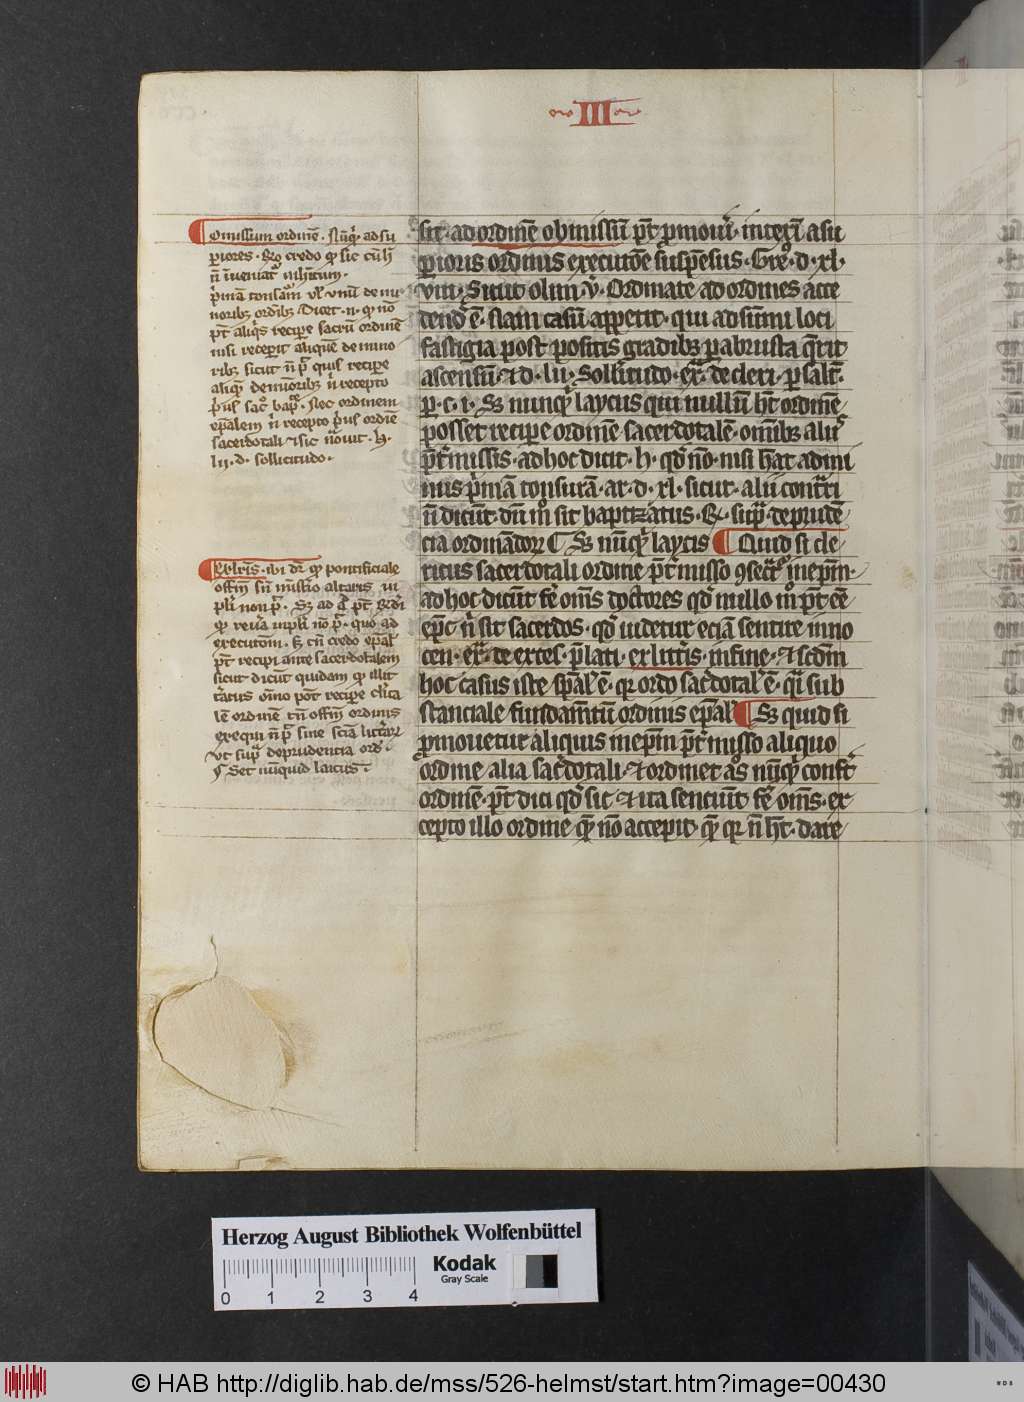 III
omissum ordinē · Nūq̄ ad su
p̄iores · R̄o credo q̄ sic cū h̄
n̄ īueniatᷣ inhitum ·
p̄mā tonsam̄ vl̓ vnū de mi
noribꝫ ordībꝫ · Dicet · n · q̄ nō
pt̄ aliq̄s recip̄e sacrū ordinē
nisi recep̄it aliquē de mino
ribꝫ sicut n̄ pͣ quis recip̄e
aliq̄ demioribꝫ n̄ recepto
p̄us sacͦ bapͣ · Nec ordinem
ep̄alem n̄ recepto p̄us ordīe
sacerdotali ⁊ sic nouit · h̄ ·
lii · d · sollicitudo ·
ubi dr̄ q̄ pontificiale
offm̄ sn̄ mīstīo altaris īn
pl̓i non pͣ · Sꝫ ad qͣ pt̄ r̄deri
q̄ re uͣa inpl̓i nō pͣ · quo ad
executōm · Sꝫ tn̄ credo ep̄al̓
pt̄ recipi ante sacerdotalem
sicut dicūt quidam q̄ illit
t̄atus oīno pōt recip̄e cl̓ica
lē ordinē tn̄ offm̄ ordinis
exequi n̄ pͣ sine sciā litt̄arꝝ
vt supͣ de prudencia ord̄ ·
¶ Set nūquid laicus ·
sit · ad ordinē obmissū pt̄ p̱mou̓i · inteꝝ̄ a su
p̱ioris ordinis executōe suspensus · Gr̄eͦ · d · xl ·
viii · Sicut olim · v̓ · Ordinate ad ordines acce
dend̄ ē · Nam casū appetit · qui ad sūmi loci
fastigia post positis gradibꝫ p̱ abrupta q̄rit
ascensū · ⁊ d · lii · Sollicitudo · ex̄ · de cleri · p̱ salt̄ ·
p̱ · c · i · Sꝫ nunq̄ laycus qui nullū ht̄ ordinē
posset recip̱e ordinē sacerdotalē · omībꝫ alijs
pt̄missis · ad hoc dicit · h · qd̓ nō · nisi h̄at ad mi
nus p̓mā tonsurā · ar · d · xl · sicut · alii cont̄ri
ū dicūt · dū mͦ sit baptizatus · R̄ · supͣ · de prudē
cia ordinādorꝝ ¶ Sꝫ nūq̄ laycis ¶ Quid si cle
ricus sacerdotali ordine pt̄misso 9secͣtᷣ in ep̄m ·
ad hoc dicūt fē om̄s doctores qd̓ nullo mͦ pt̄ eē
ep̄c n̓ sit sacerdos · qd̓ uidetur eciā sentire inno
cen · ex̄ · de exces · p̄lati · ex litt̄is · in fine · ⁊ scd̄m
hoc casus iste sp̄al̓ ē · qr ordo sac̓dotal̓ ē · qͣi sub
stanciale fundam̄tū ordinis ep̄al̓ ¶ Sꝫ quid si
p̱mouetur aliquis in ep̄m pt̄misso aliquo
ordine alia sac̓dotali · ⁊ ordinet aͦs nūq̄ confert
ordinē · pt̄ dici qd̓ sic ⁊ ita senciūt fē om̄s · ex
cepto illo ordine quē nō accepit · qͣ qr n̄ ht̄ · dare
Herzog August Bibliothek Wolfenbüttel
Kodak
Gray Scale
0 1 2 3 4
© HAB http://diglib.hab.de/mss/526-helmst/start.htm?image=00430